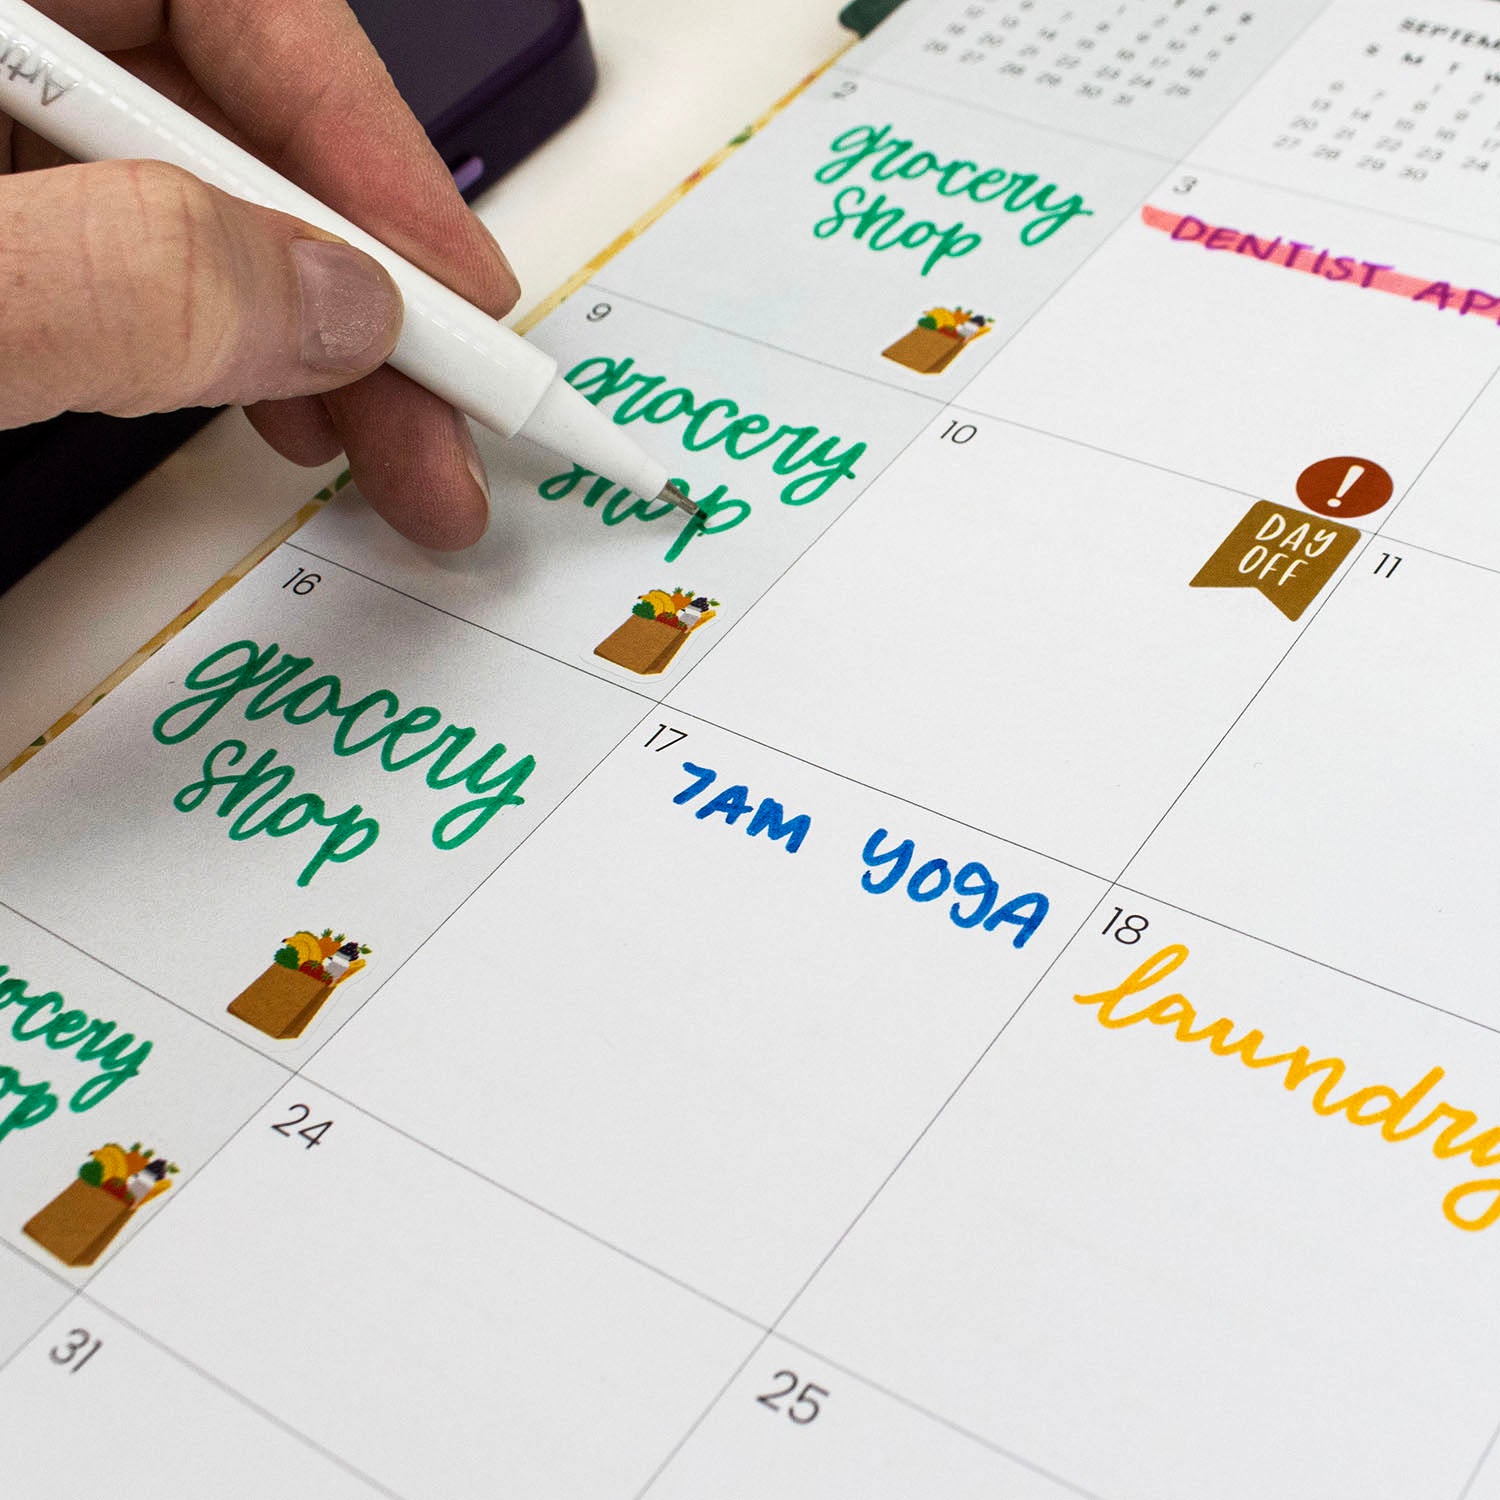 Arti
SEPTEM
S M T W
2
grocery
shop
3
DENTIST AP
9
grocery
shop
10
!
DAY
OFF
11
16
grocery
shop
17
7AM YOGA
18
laundry
ocery
op
24
25
31